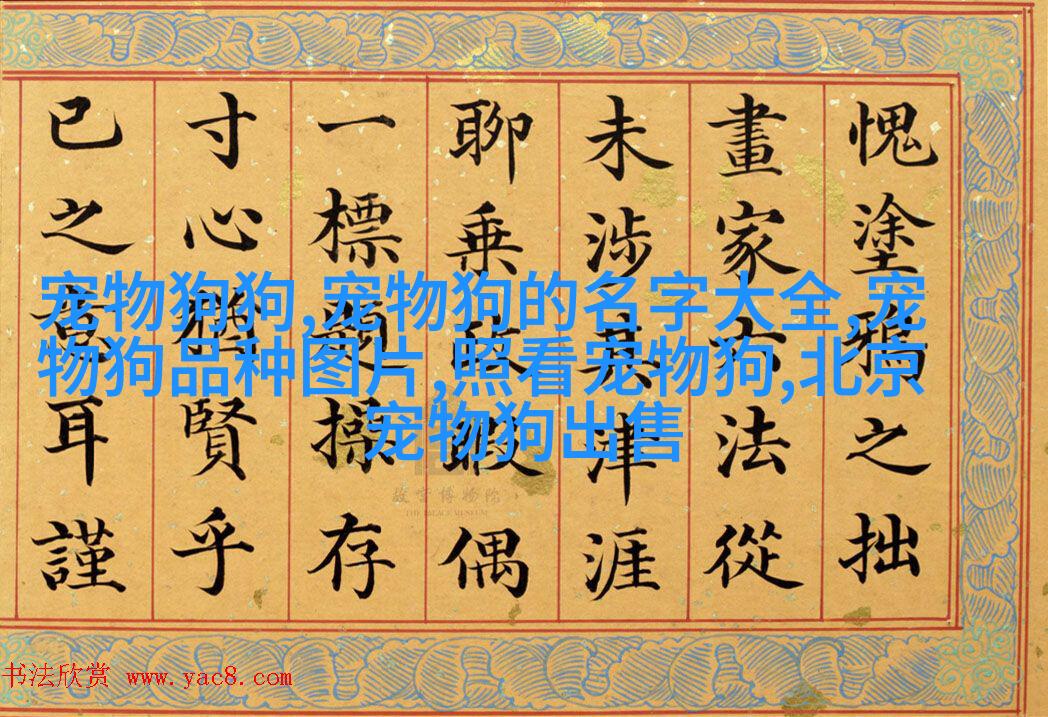 愧塗鴉之拙
畫家六法從
未涉其津涯
聊乘暇偶
一標題操存
寸心賢乎
已之意耳謹
宠物狗狗,宠物狗的名字大全,宠
物狗品种图片,照看宠物狗,北京
宠物狗出售
故宫博物院
THE PALACE MUSEUM
书法欣赏 www.yac8.com